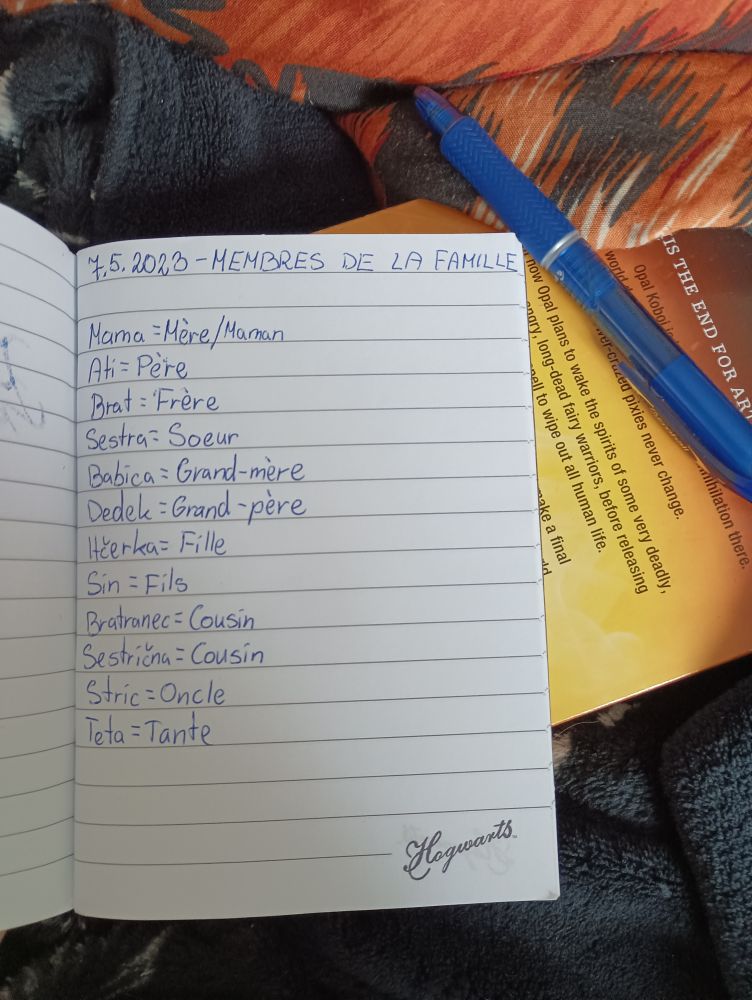 7.5.2023 - MEMBRES DE LA FAMILLE
Mama = Mère/Maman
Ati = Père
Brat = Frère
Sestra = Soeur
Babica = Grand-mère
Dedek = Grand-père
Hčerka = Fille
Sin = Fils
Bratranec = Cousin
Sestrična = Cousin
Stric = Oncle
Teta = Tante
Hogwarts
IS THE END FOR ART
Opal Koboi
world
pixies never change.
nihilation there.
now Opal plans to wake the spirits of some very deadly,
angry, long-dead fairy warriors, before releasing
to wipe out all human life.
make a final